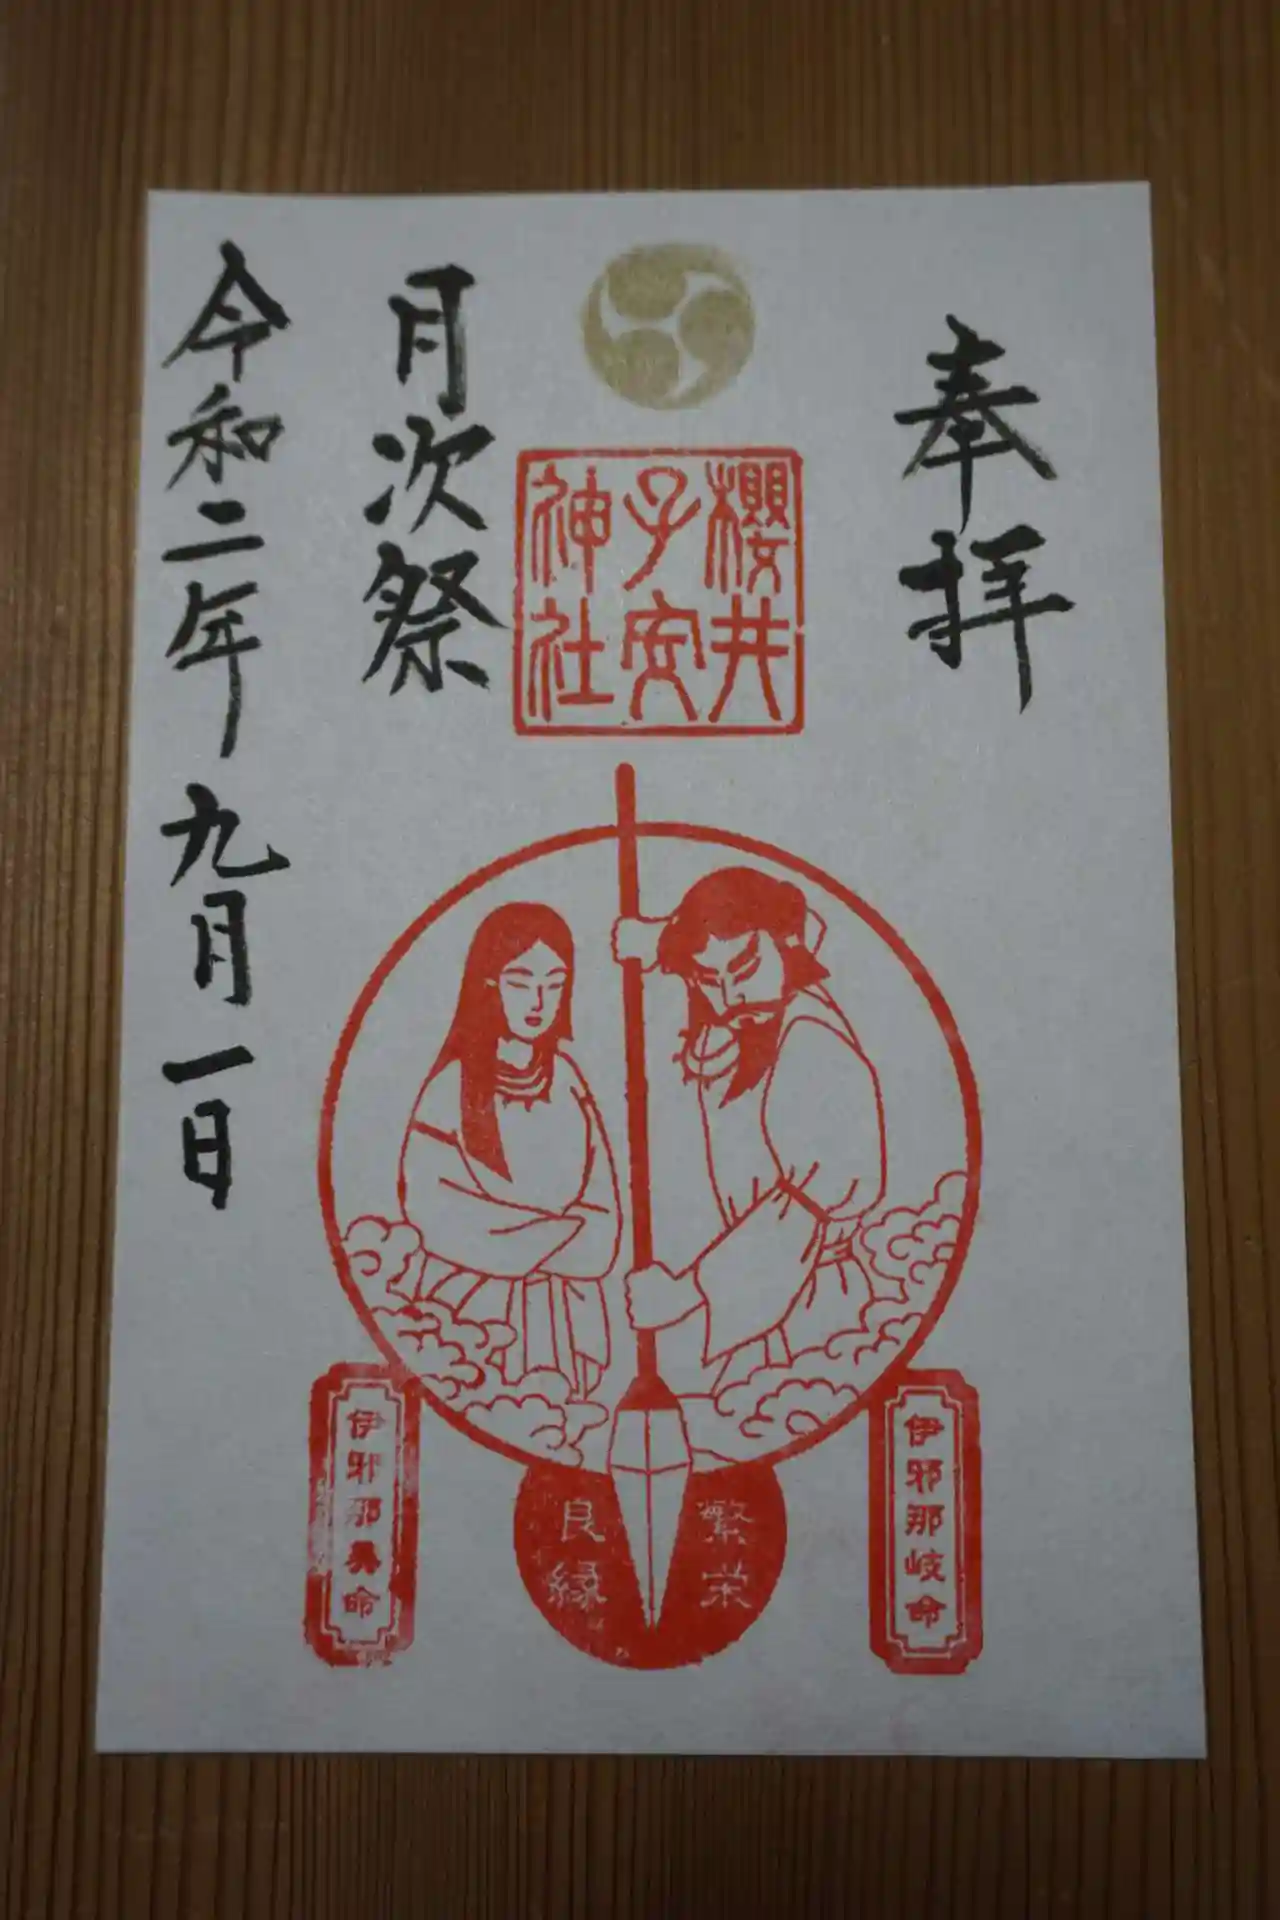 奉拝
櫻井
子安
神社
月次祭
令和二年九月一日
伊邪那岐命
繁栄
良縁
伊邪那美命